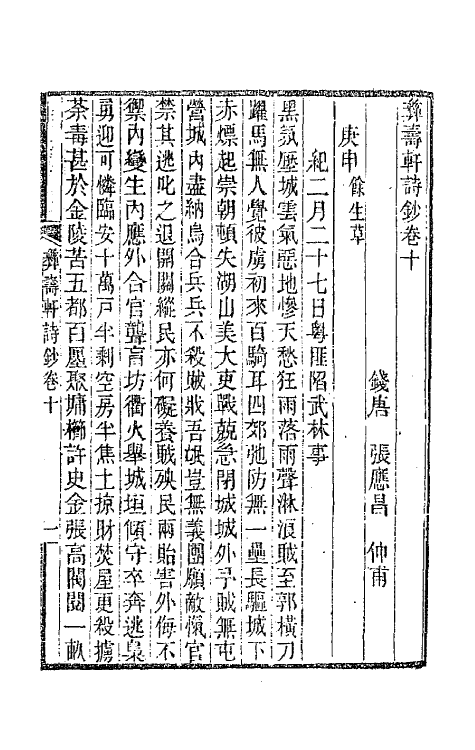 彝壽軒詩鈔卷十
錢唐 張應昌 仲甫
庚申 餘生草
紀二月二十七日粵匪陷武林事
黑氛壓城雲氣惡地慘天愁狂雨落雨聲淋浪賊至郭橫刀
躍馬無人覺彼虜初來百騎耳四郊弛防無一壘長驅城下
赤熛起崇朝頓失湖山美大吏戰兢急閉城城外予賊無屯
營城內盡納烏合兵兵不殺賊戕吾氓豈無義團願敵愾官
禁其逃叱之退開關縱民亦何礙養賊殃民兩貽害外侮不
禦內變生內應外合官聾盲坊衢火舉城垣傾守卒奔逃梟
勇迎可憐臨安十萬戶半剩空房半焦土掠財焚屋更殺擄
荼毒甚於金陵苦五都百廛聚墉櫛許史金張高閥閱一畝
彝壽軒詩鈔卷十
一